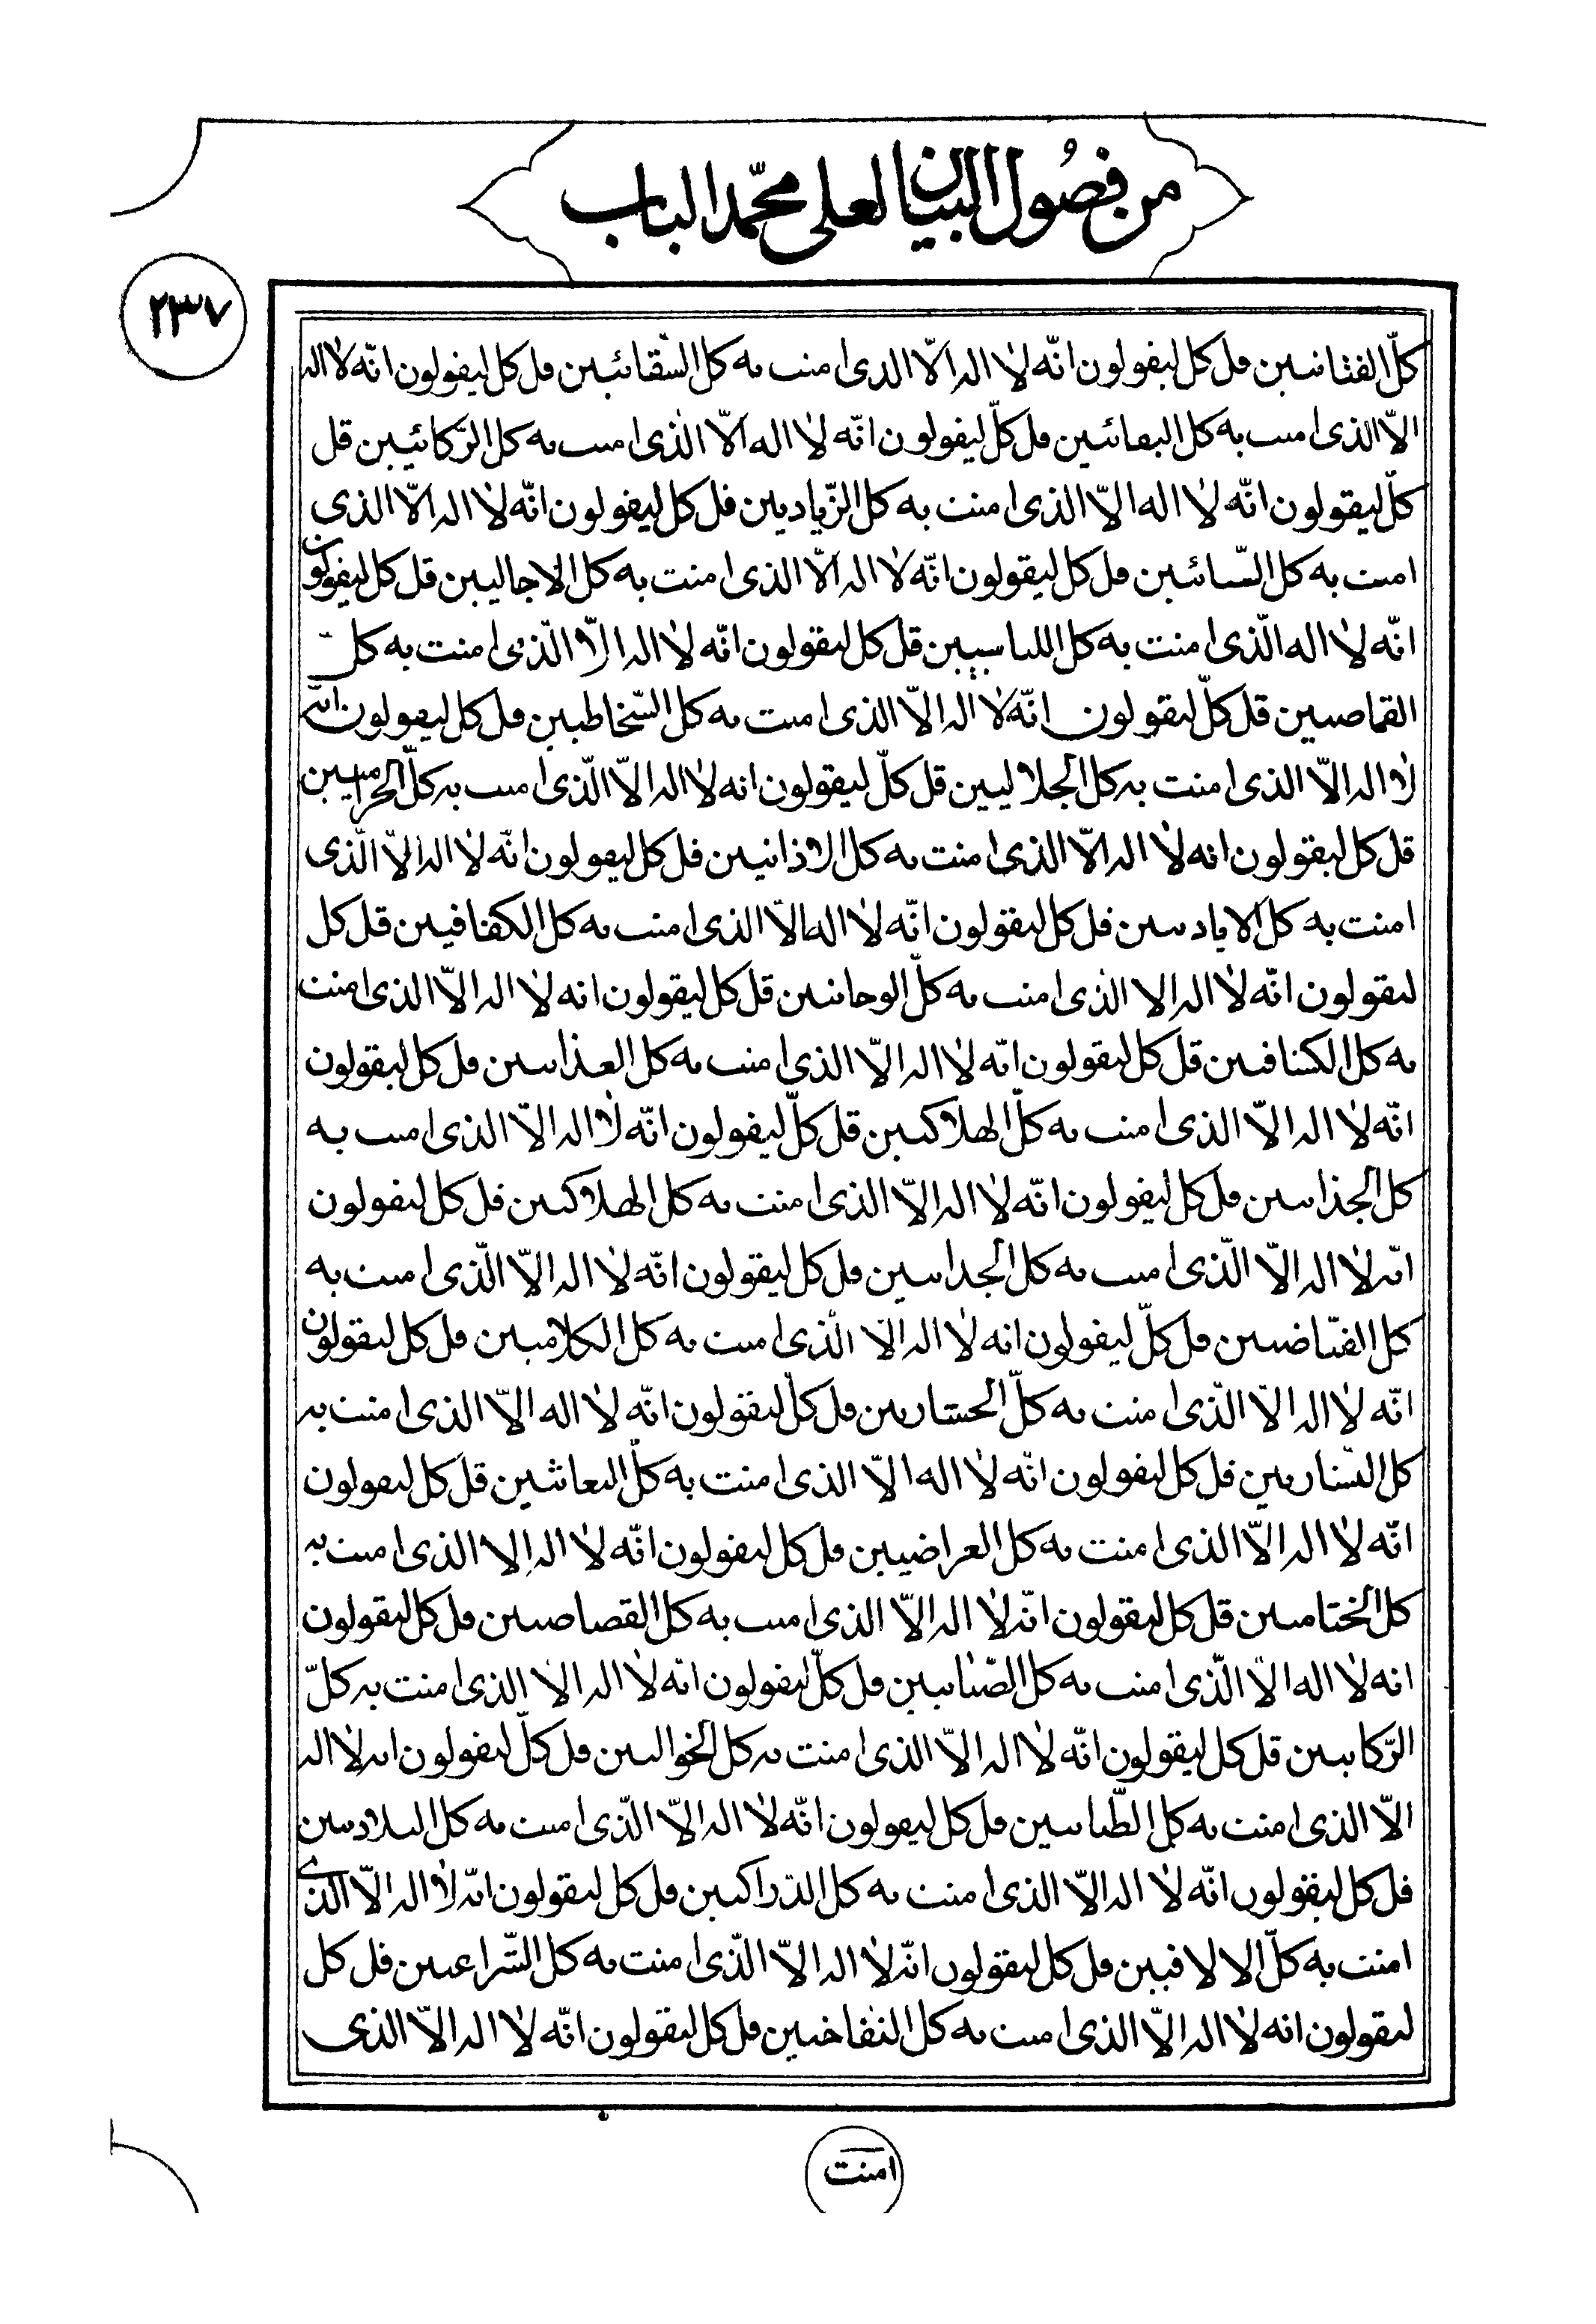 من فصول البيان لعلى محمّد الباب
٢٣٧
كلّ الفتانيين قل كل ليقولون انّه لا اله الّا الذى امنت به كل السّقائيين قل كل ليقولون انّه لا اله
الّا الذى امنت به كل البهائيين قل كلّ ليقولون انّه لا اله الّا الّذى امنت به كل الرّكائيين قل
كلّ ليقولون انّه لا اله الّا الذى امنت به كل الزّياديين قل كل ليقولون انّه لا اله الّا الذى
امنت به كل السّائيين قل كل ليقولون انّه لا اله الّا الذى امنت به كل الاجاليين قل كل ليقولون
انّه لا اله الّذى امنت به كل اللباسيين قل كل ليقولون انّه لا اله الّا الّذى امنت به كل
القماصيين قل كلّ ليقولون انّه لا اله الّا الذى امنت به كل السّخاطيين قل كل ليقولون انّه
لا اله الّا الذى امنت به كل الجلاليين قل كلّ ليقولون انه لا اله الّا الّذى امنت به كلّ الحراميين
قل كل ليقولون انه لا اله الّا الذى امنت به كل الاذانيين قل كل ليقولون انّه لا اله الّا الّذى
امنت به كل الاياديين قل كل ليقولون انّه لا اله الّا الذى امنت به كل الكفافيين قل كل
ليقولون انّه لا اله الا الذى امنت به كلّ الوحانيين قل كل ليقولون انه لا اله الّا الذى امنت
به كل الكنافيين قل كل ليقولون انّه لا اله الّا الذى امنت به كل العذابيين قل كل ليقولون
انّه لا اله الّا الذى امنت به كلّ الهلاكيين قل كلّ ليقولون انّه لا اله الّا الذى امنت به
كل الجذابيين قل كل ليقولون انّه لا اله الّا الذى امنت به كل الهلاكيين قل كل ليقولون
انّه لا اله الّا الّذى امنت به كل الجدابيين قل كل ليقولون انّه لا اله الّا الّذى امنت به
كل الفيّاضيين قل كلّ ليقولون انه لا اله الّا الّذى امنت به كل الكلاميين قل كل ليقولون
انّه لا اله الّا الّذى امنت به كلّ الحسّاريين قل كلّ ليقولون انّه لا اله الّا الذى امنت به
كل السّناريين قل كل ليقولون انّه لا اله الّا الذى امنت به كلّ البعاثيين قل كل ليقولون
انّه لا اله الّا الذى امنت به كل العراضيين قل كل ليقولون انّه لا اله الا الذى امنت به
كل الختاميين قل كل ليقولون انّه لا اله الّا الذى امنت به كل القصاصيين قل كل ليقولون
انه لا اله الّا الّذى امنت به كل الصّنابيين قل كلّ ليقولون انّه لا اله الا الذى امنت به كلّ
الرّكابيين قل كل ليقولون انّه لا اله الّا الذى امنت به كل الخواليين قل كلّ ليقولون انه لا اله
الّا الذى امنت به كل الطّبابيين قل كل ليقولون انّه لا اله الّا الّذى امنت به كل البلاديين
قل كل ليقولون انّه لا اله الّا الذى امنت به كل الدّراكيين قل كل ليقولون انّه لا اله الّا الذى
امنت به كلّ الالافيين قل كل ليقولون انّه لا اله الّا الّذى امنت به كل الشّراعيين قل كل
ليقولون انه لا اله الّا الذى امنت به كل النفاخيين قل كل ليقولون انّه لا اله الّا الذى
امنت